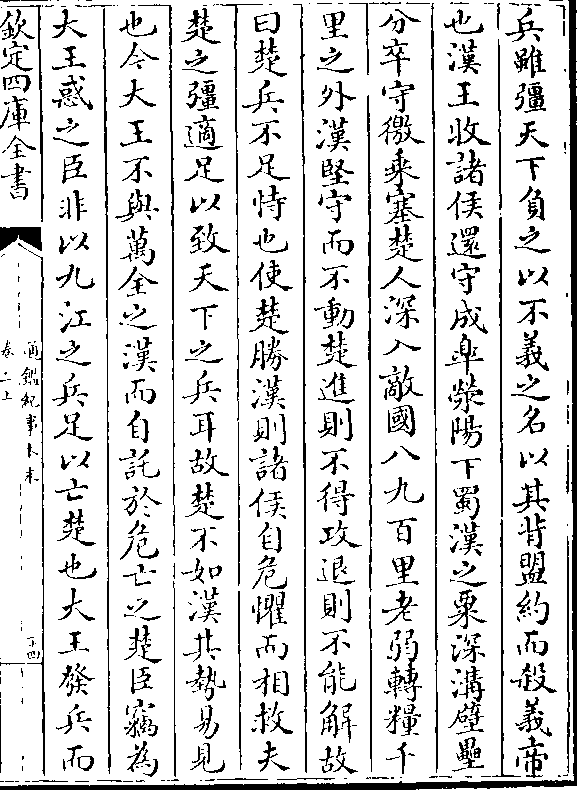 兵雖彊天下負之以不義之名以其背盟約而殺義帝
也漢王收諸侯還守成臯滎陽下蜀漢之粟深溝壁壘
分卒守徼乘塞楚人深入敵國八九百里老弱轉糧千
里之外漢堅守而不動楚進則不得攻退則不能解故
曰楚兵不足恃也使楚勝漢則諸侯自危懼而相救夫
楚之彊適足以致天下之兵耳故楚不如漢其勢易見
也今大王不與萬全之漢而自託於危亡之楚臣竊為
大王惑之臣非以九江之兵足以亡楚也大王發兵而
欽定四庫全書
通鑑紀事本末
卷二上
二十四